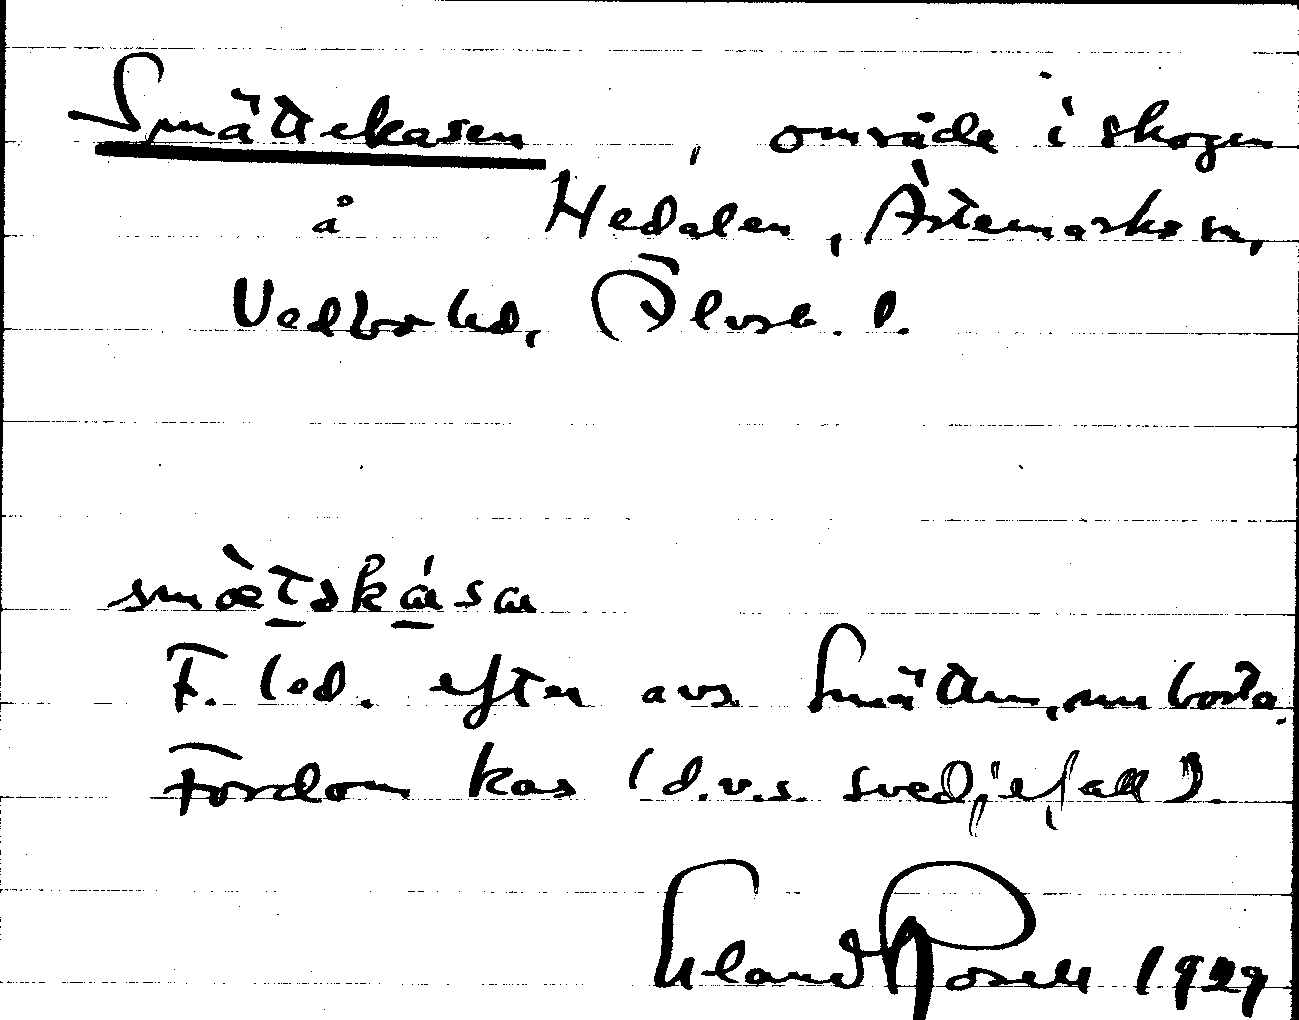 Smättekasen, område i skogen
å Hedalen, Ärtemarks sn,
Vedbo hd, Älvsb. l.
smæ̀təkɑ́sɑ
F. led. efter avs. Smätten, nu borta.
Fordom kas (d.v.s. svedjefall).
Erland Rosell 1929